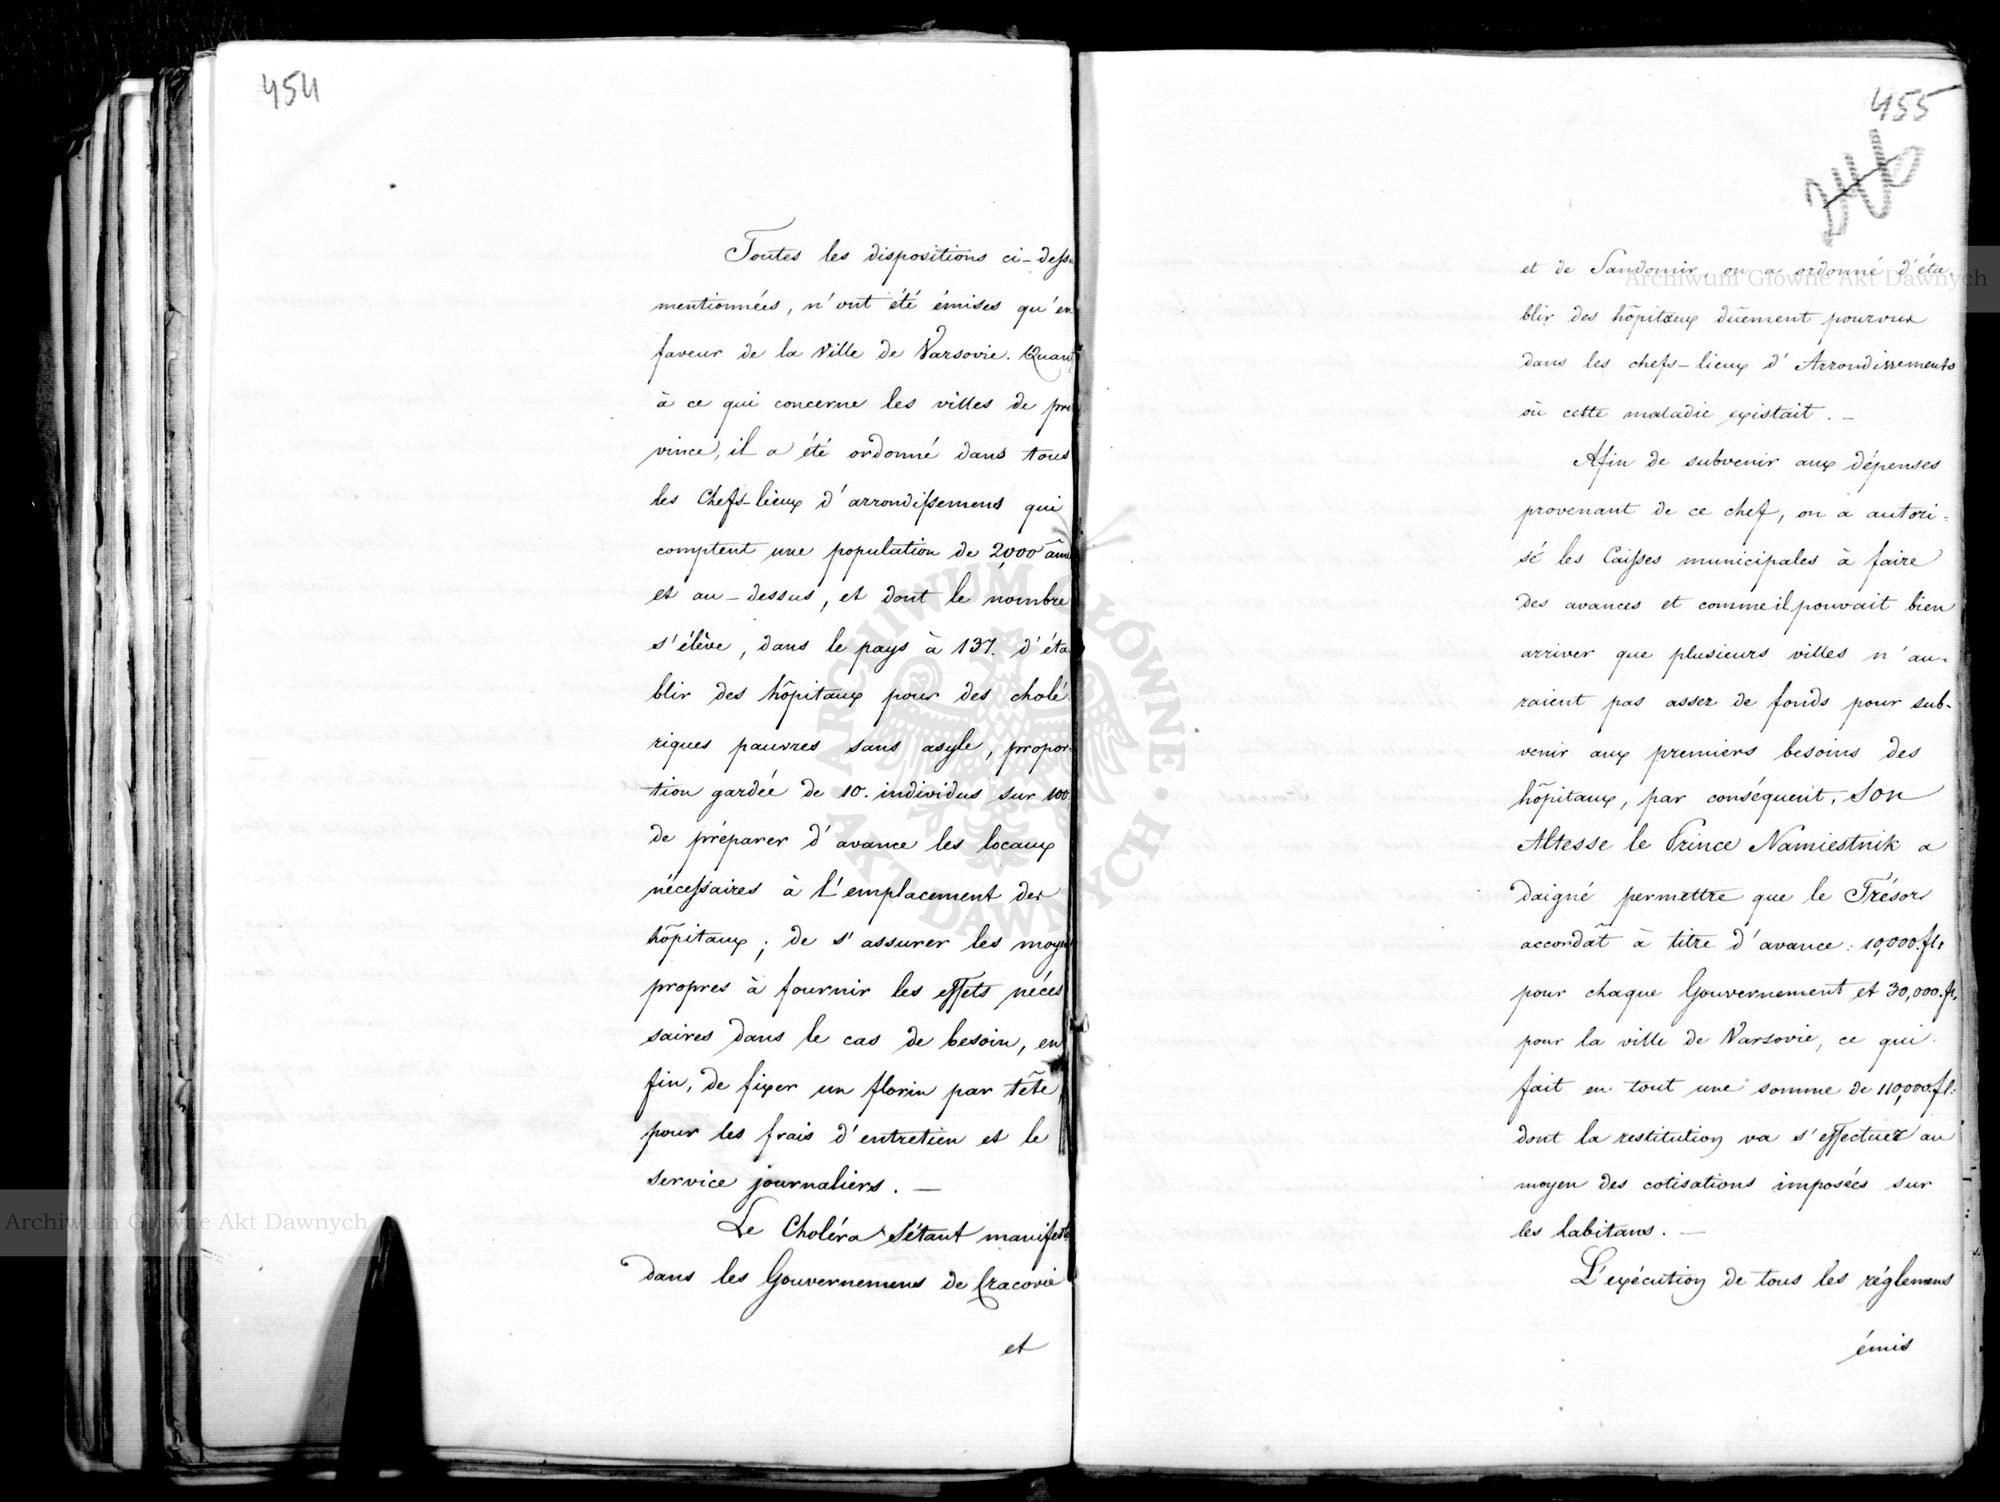 454
Toutes les dispositions ci-dessu
mentionnées, n'ont été émises qu'en
faveur de la Ville de Varsovie. Quan
à ce qui concerne les villes de pro
vince, il a été ordonné dans tous
les Chefs-lieux d'arrondissemens qui
comptent une population de 2,000 âme
et au-dessus, et dont le nombre
s'élève, dans le pays à 137. d'éta
blir des hôpitaux pour des cholé
riques pauvres sans asyle, propor-
tion gardée de 10. individus sur 100.
de préparer d'avance les locaux
nécessaires à l'emplacement des
hôpitaux; de s'assurer les moyen
propres à fournir les effets néces
saires dans le cas de besoin, en
fin, de fixer un florin par tête,
pour les frais d'entretien et le
service journaliers. —
Le Choléra s'étant manifest
dans les Gouvernemens de Cracovie
et
455
246
et de Sandomir, on a ordonné d'éta-
blir des hôpitaux dûement pourvus
dans les chefs-lieux d'Arrondissements
où cette maladie existait. —
Afin de subvenir aux dépenses
provenant de ce chef, on a autori-
sé les Caisses municipales à faire
des avances et comme il pouvait bien
arriver que plusieurs villes n'au-
raient pas assez de fonds pour sub-
venir aux premiers besoins des
hôpitaux, par conséquent, Son
Altesse le Prince Namiestnik a
daigné permettre que le Trésor
accordât à titre d'avance: 10,000.fls
pour chaque Gouvernement et 30,000.fl.
pour la ville de Varsovie, ce qui
fait en tout une somme de 110,000.fl:
dont la restitution va s'effectuer au
moyen des cotisations imposées sur
les habitans. —
L'exécution de tous les réglemens
émis
Archiwum Główne Akt Dawnych
Archiwum Główne Akt Dawnych
ARCHIWUM GŁÓWNE • AKT DAWNYCH •